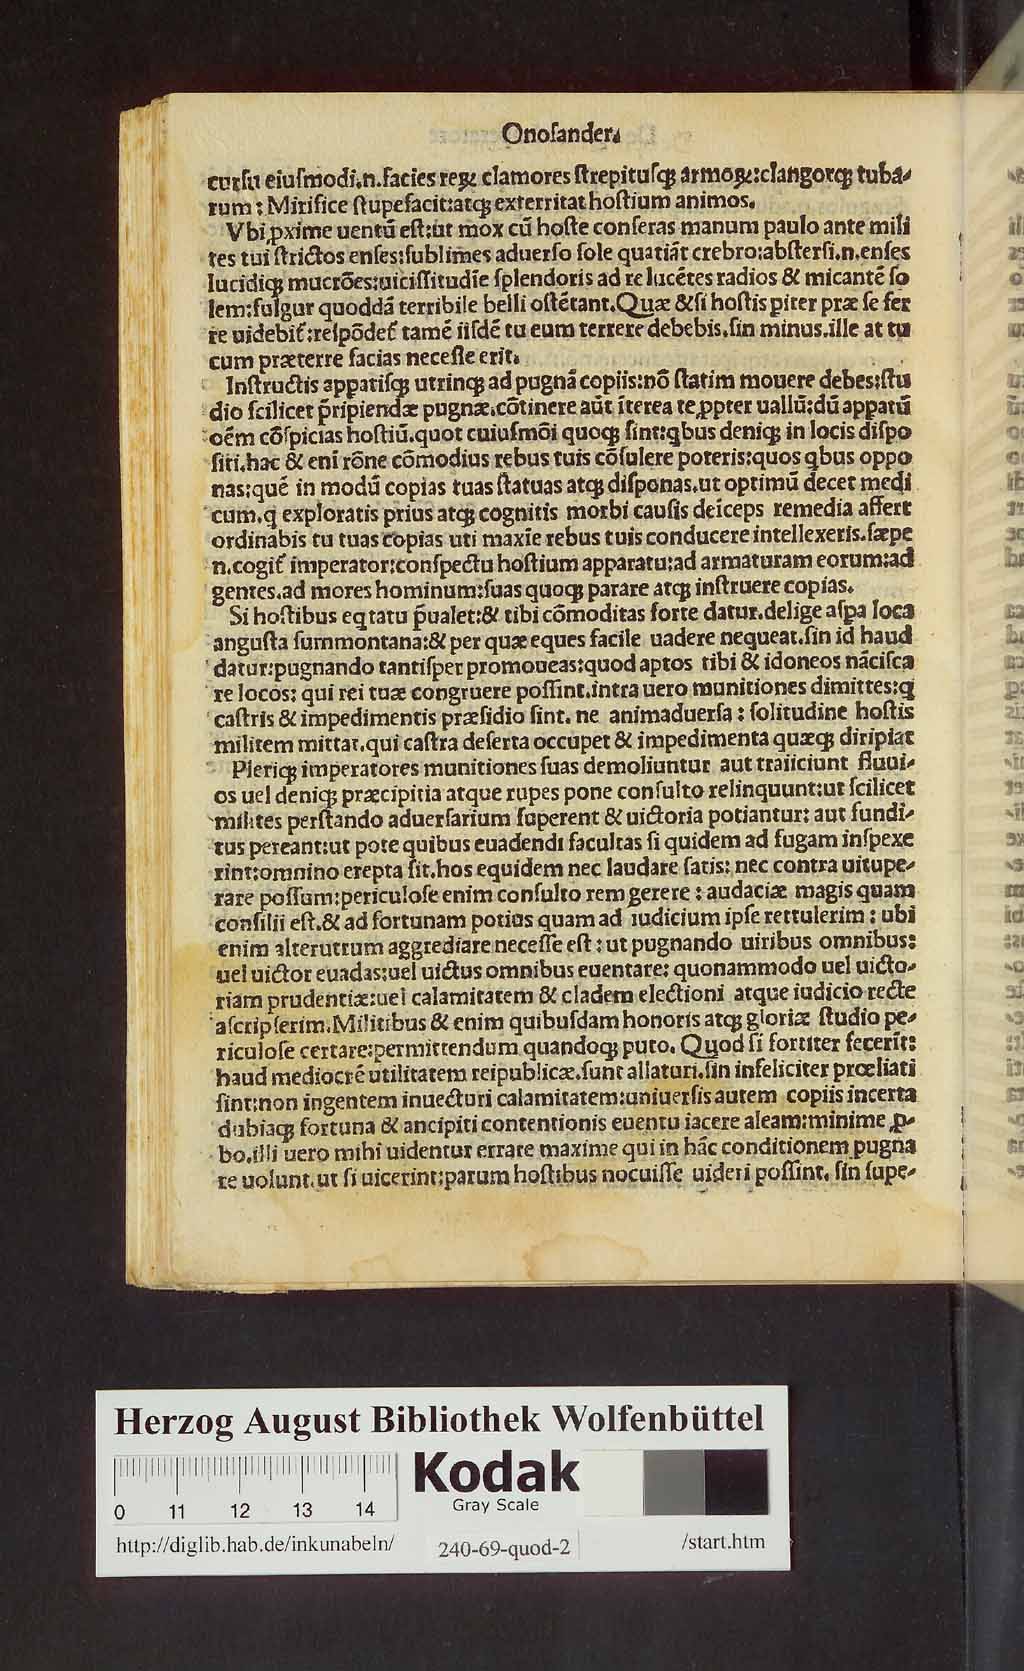 Onoſander.
curſu eiuſmodi.n.facies reꝝ clamores ſtrepituſqꝫ armoꝝ:clangorqꝫ tuba-
rum: Mirifice ſtupefacit:atqꝫ exterritat hoſtium animos.
Vbi ꝓxime uentū eſt:ut mox cū hoſte conferas manum paulo ante mili
tes tui ſtrictos enſes:ſublimes aduerſo ſole quatiāt crebro:abſterſi.n.enſes
lucidiqꝫ mucrōes:uiciſſitudīe ſplendoris ad re lucētes radios & micantē ſo
lem:fulgur quoddā terribile belli oſtētant.Quæ & ſi hoſtis piter præ ſe fer
re uidebit̃:reſpōdet̃ tamē iiſdē tu eum terrere debebis.ſin minus.ille at tu
cum præterre facias neceſſe erit.
Inſtructis appatiſqꝫ utrinqꝫ ad pugnā copiis:nō ſtatim mouere debes:ſtu
dio ſcilicet p̄ripiendæ pugnæ.cōtinere aūt īterea te ꝓpter uallū:dū appatū
oēm cōſpicias hoſtiū.quot cuiuſmōi quoqꝫ ſint:qbus deniqꝫ in locis diſpo
ſiti.hac & enī rōne cōmodius rebus tuis cōſulere poteris:quos qbus oppo
nas:quē in modū copias tuas ſtatuas atqꝫ diſponas.ut optimū decet medi
cum.q exploratis prius atqꝫ cognitis morbi cauſis deīceps remedia affert
ordinabis tu tuas copias uti maxīe rebus tuis conducere intellexeris.ſæpe
n.cogit̃ imperator:conſpectu hoſtium apparatu:ad armaturam eorum:ad
gentes.ad mores hominum:ſuas quoqꝫ parare atqꝫ inſtruere copias.
Si hoſtibus eqtatu p̄ualet:& tibi cōmoditas forte datur.delige aſpa loca
anguſta ſummontana:& per quæ eques facile uadere nequeat.ſin id haud
datur:pugnando tantiſper promoueas:quod aptos tibi & idoneos nāciſca
re locos: qui rei tuæ congruere poſſint.intra uero munitiones dimittes:q
caſtris & impedimentis præſidio ſint. ne animaduerſa: ſolitudine hoſtis
militem mittat.qui caſtra deſerta occupet & impedimenta quæqꝫ diripiat
Pleriqꝫ imperatores munitiones ſuas demoliuntur aut traiiciunt fluui-
os uel deniqꝫ præcipitia atque rupes pone conſulto relinquunt:ut ſcilicet
milites perſtando aduerſarium ſuperent & uictoria potiantur: aut fundi-
tus pereant:ut pote quibus euadendi facultas ſi quidem ad fugam inſpexe
rint:omnino erepta ſit.hos equidem nec laudare ſatis: nec contra uitupe-
rare poſſum:periculoſe enim conſulto rem gerere: audaciæ magis quam
conſilii eſt.& ad fortunam potius quam ad iudicium ipſe rettulerim: ubi
enim alterutrum aggrediare neceſſe eſt: ut pugnando uiribus omnibus:
uel uictor euadas:uel uictus omnibus euentare: quonammodo uel uicto-
riam prudentiæ:uel calamitatem & cladem electioni atque iudicio recte
aſcripſerim.Militibus & enim quibuſdam honoris atqꝫ gloriæ ſtudio pe-
riculoſe certare:permittendum quandoqꝫ puto. Quod ſi fortiter fecerīt:
haud mediocrē utilitatem reipublicæ.ſunt allaturi.ſin infeliciter prœliati
ſint:non ingentem inuecturi calamitatem:uniuerſis autem copiis incerta
dubiaqꝫ fortuna & ancipiti contentionis euentu iacere aleam:minime ꝓ-
bo.illi uero mihi uidentur errare maxime qui in hāc conditionem pugna
re uolunt.ut ſi uicerint:parum hoſtibus nocuiſſe uideri poſſint. ſin ſupe-
Herzog August Bibliothek Wolfenbüttel
0 11 12 13 14
Kodak
Gray Scale
http://diglib.hab.de/inkunabeln/ 240-69-quod-2 /start.htm